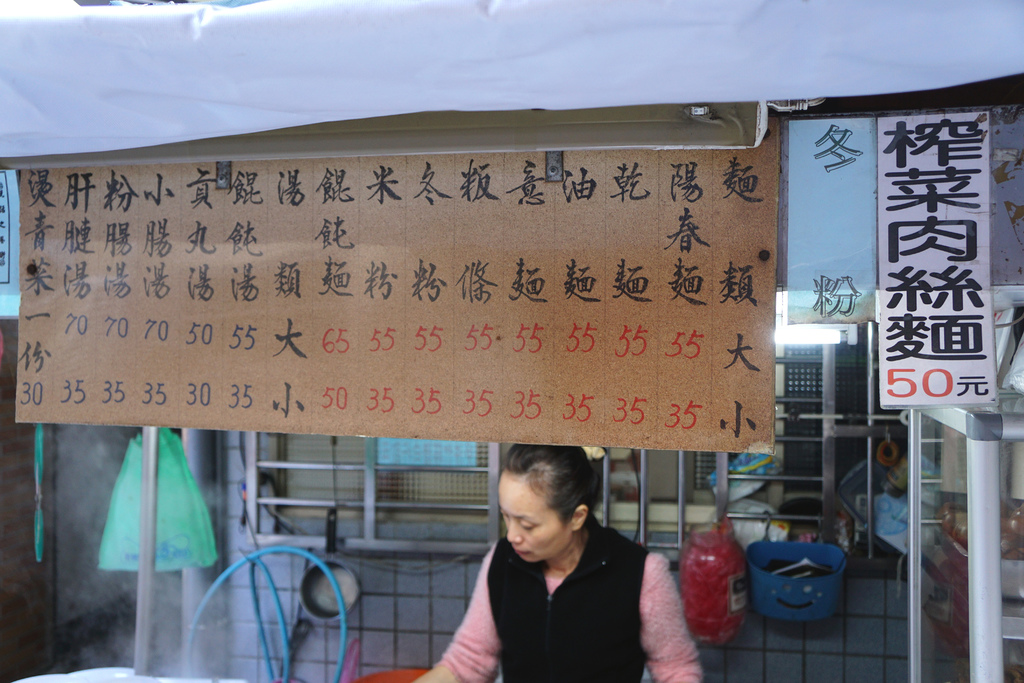 麵類 大 小
陽春麵 55 35
乾麵 55 35
油麵 55 35
意麵 55 35
粄條 55 35
冬粉 55 35
米粉 55 35
餛飩麵 65 50
湯類 大 小
餛飩湯 55 35
貢丸湯 50 30
小腸湯 70 35
粉腸湯 70 35
肝腱湯 70 35
燙青菜一份 30
冬粉
榨菜肉絲麵
50元